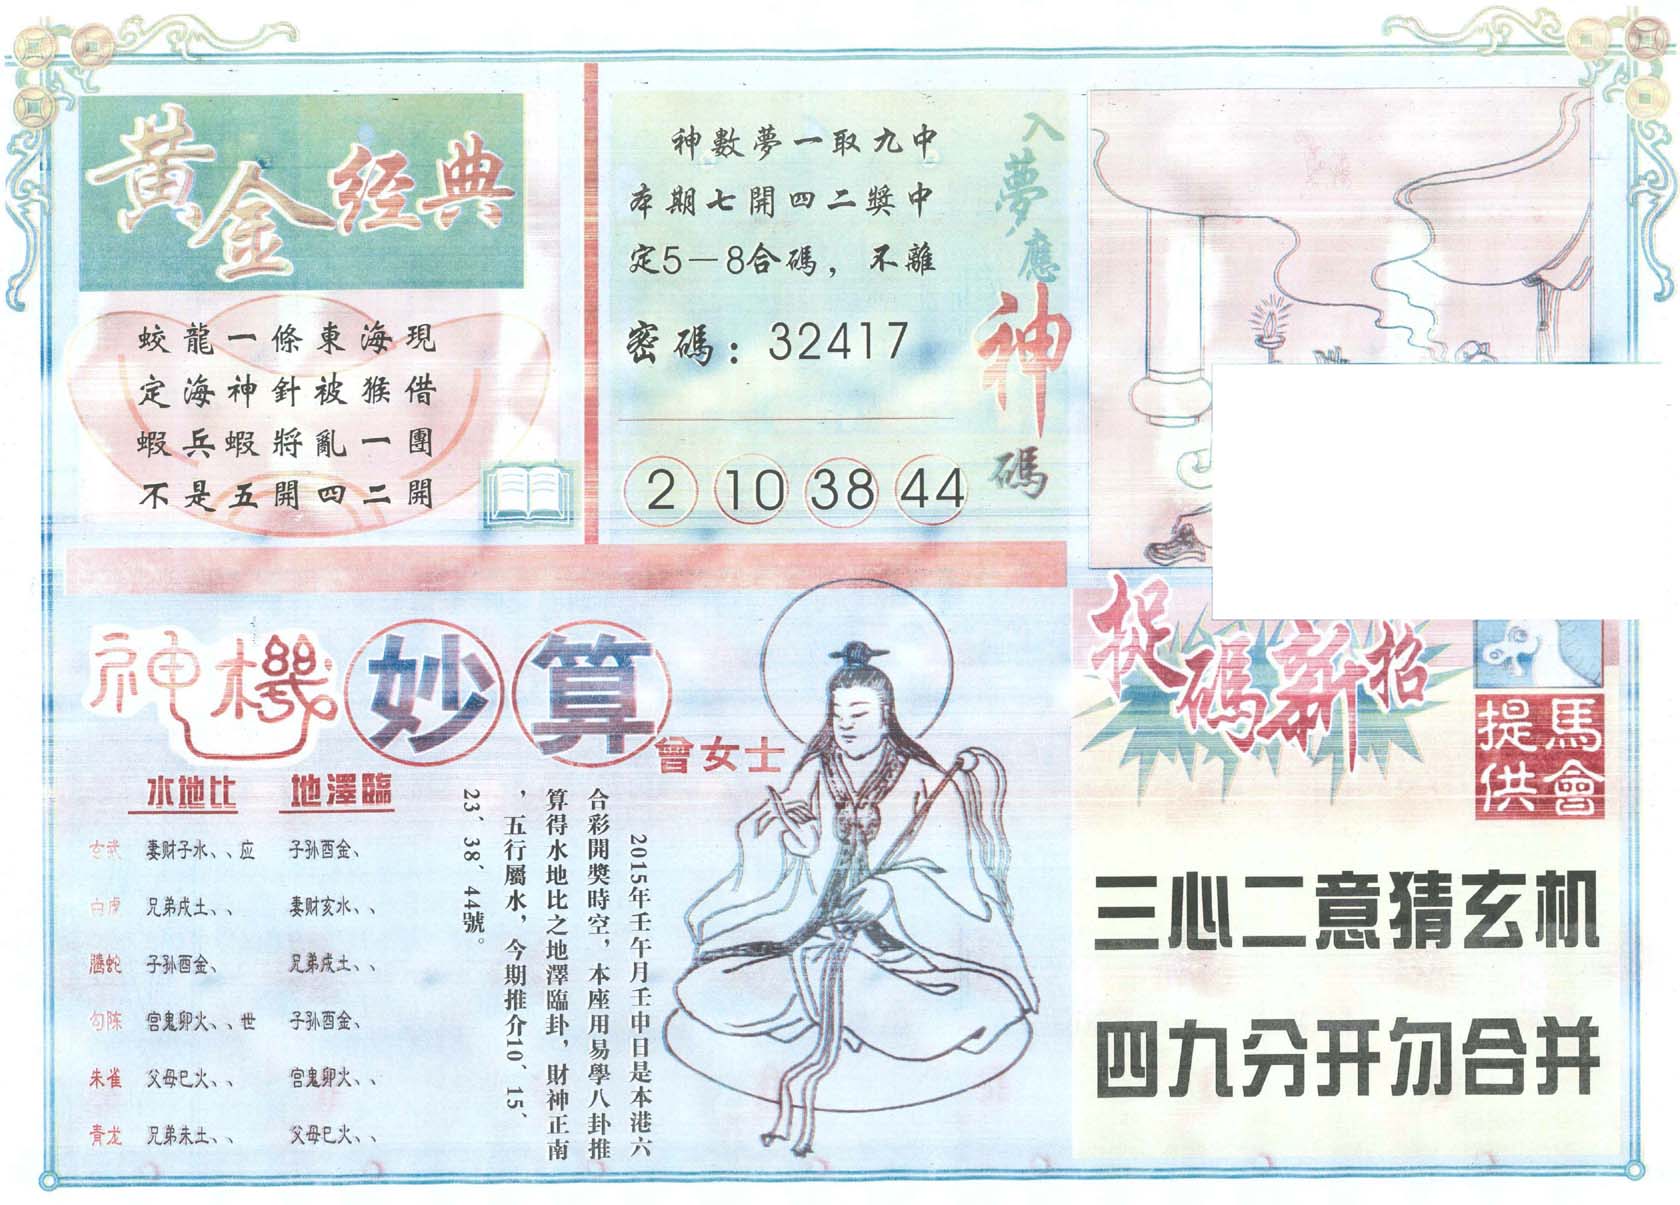 黃金经典
蛟龍一條東海現
定海神針被猴借
蝦兵蝦將亂一團
不是五開四二開
入夢應神碼
神數夢一取九中
本期七開四二獎中
定5－8合碼，不離
密碼：32417
2 10 38 44
神機妙算
曾女士
水地比 地澤臨
玄武 妻财子水、、应 子孙酉金、
白虎 兄弟戌土、、 妻财亥水、、
騰蛇 子孙酉金、 兄弟戌土、、
勾陈 官鬼卯火、、世 子孙酉金、
朱雀 父母巳火、、 官鬼卯火、、
青龙 兄弟未土、、 父母巳火、、
2015年壬午月壬申日是本港六
合彩開獎時空，本座用易學八卦推
算得水地比之地澤臨卦，財神正南
，五行屬水，今期推介10、15、
23、38、44號。
捉碼新招
馬會提供
三心二意猜玄机
四九分开勿合并